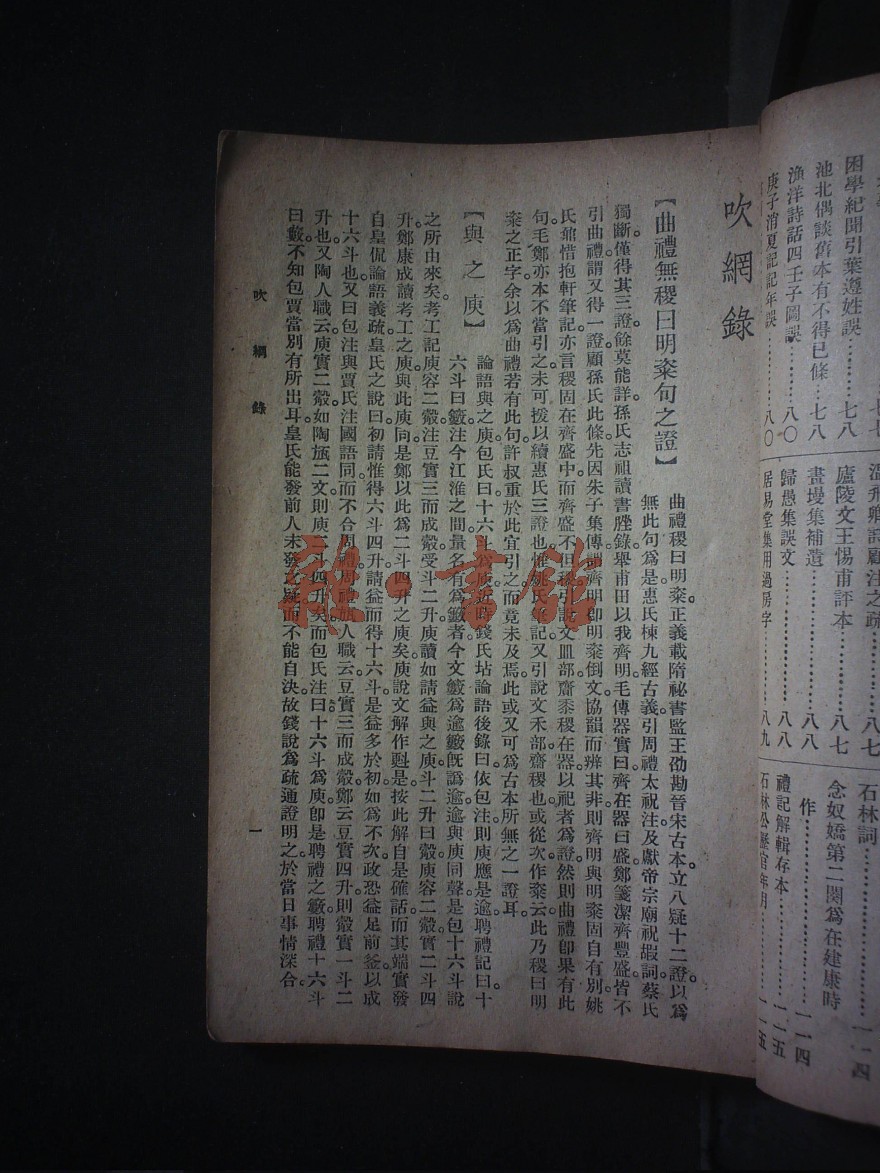 困學紀聞引葉遵姓誤………七八
池北偶談舊本有不得已條…七八
漁洋詩話四壬子圖誤………八〇
庚子消夏記記年誤…………八〇
溫飛卿詩顧注之疏…………八七
廬陵文王惕甫評本…………八七
畫墁集補遺…………………八八
歸愚集誤文…………………八八
居易堂集用過房字…………八九
石林詞………………………一一四
念奴嬌第二闋爲在建康時
作……………………………一一四
禮記解輯存本………………一一五
石林公歷官年月……………一一五
吹網錄
【曲禮無稷曰明粢句之證】
曲禮稷曰明粢正義載隋祕書監王劭勘晉宋古本立八疑十二證以爲
無此句爲是。惠氏棟九經古義引周禮太祝注及獻帝宗廟祝嘏詞蔡氏
獨斷。僅得其三證。餘莫能詳。孫氏志祖讀書脞錄。舉甫田以我齊明。毛傳器實曰齊在器曰盛。鄭箋潔齊豐盛。皆不
引曲禮。謂又得一證。顧孫氏此條。先因朱子集傳謂齊明即明粢倒文協韻而辨其非。則齊明與明粢固自有別。姚
氏鼐惜抱軒筆記。亦言稷固在齊盛中。而齊盛不但稷。引說文皿部齋黍稷在器以祀者爲證。然則曲禮卽果有此
句。毛鄭亦本不當引之。未可援以續惠氏三證也。惟姚氏筆記又引說文禾部齋稷也。或從次作粢云。此乃稷曰明
粢之正字。余以爲曲禮若有此句。許叔重於此宜引之。而竟未及焉。此或又可爲古本所無之一證耳。
【與之庾】
論語與之庾。包氏曰。十六斗爲庾。近時錢氏坫論語後錄曰。依包注則庾應是逾。聘禮記曰。十
六斗曰籔。注今江淮之間。量名有爲籔者。今文籔爲逾。籔旣譌逾。逾與庾同聲。是包十六斗說
之所由來矣。考工記庾容二觳。注豆實三而成觳。受斗二升。庾讀如請益與之庾。斗二升曰觳。庾容二觳。實二斗四
升。鄭康成讀考工之庾。與此庾同。是鄭以此爲二斗四升之庾矣。庾說文解作𣂁是。按此解自是確話。而其端實發
自皇侃論語義疏。皇氏之說曰。初請惟得六斗四升。請益而得十六斗。是益多於初。如爲不次。政恐益足前釜。以成
十六斗也。又曰。包注與賈氏注國語同。而不合周禮。周禮旊人職云。豆實三而成觳。鄭云。豆實四升。則觳實一斗二
升也。又陶人職云。庾實二觳。如陶旊二文。則庾二斗四升矣。而包氏注曰十六斗爲庾。卽是聘禮之籔。聘禮十六斗
曰籔。不知包賈當別有所出耳。皇氏能發前人未發之疑。而不能自決。故錢說爲疏通證明之。於當日事情深合。
吹網錄
一
雜·書館